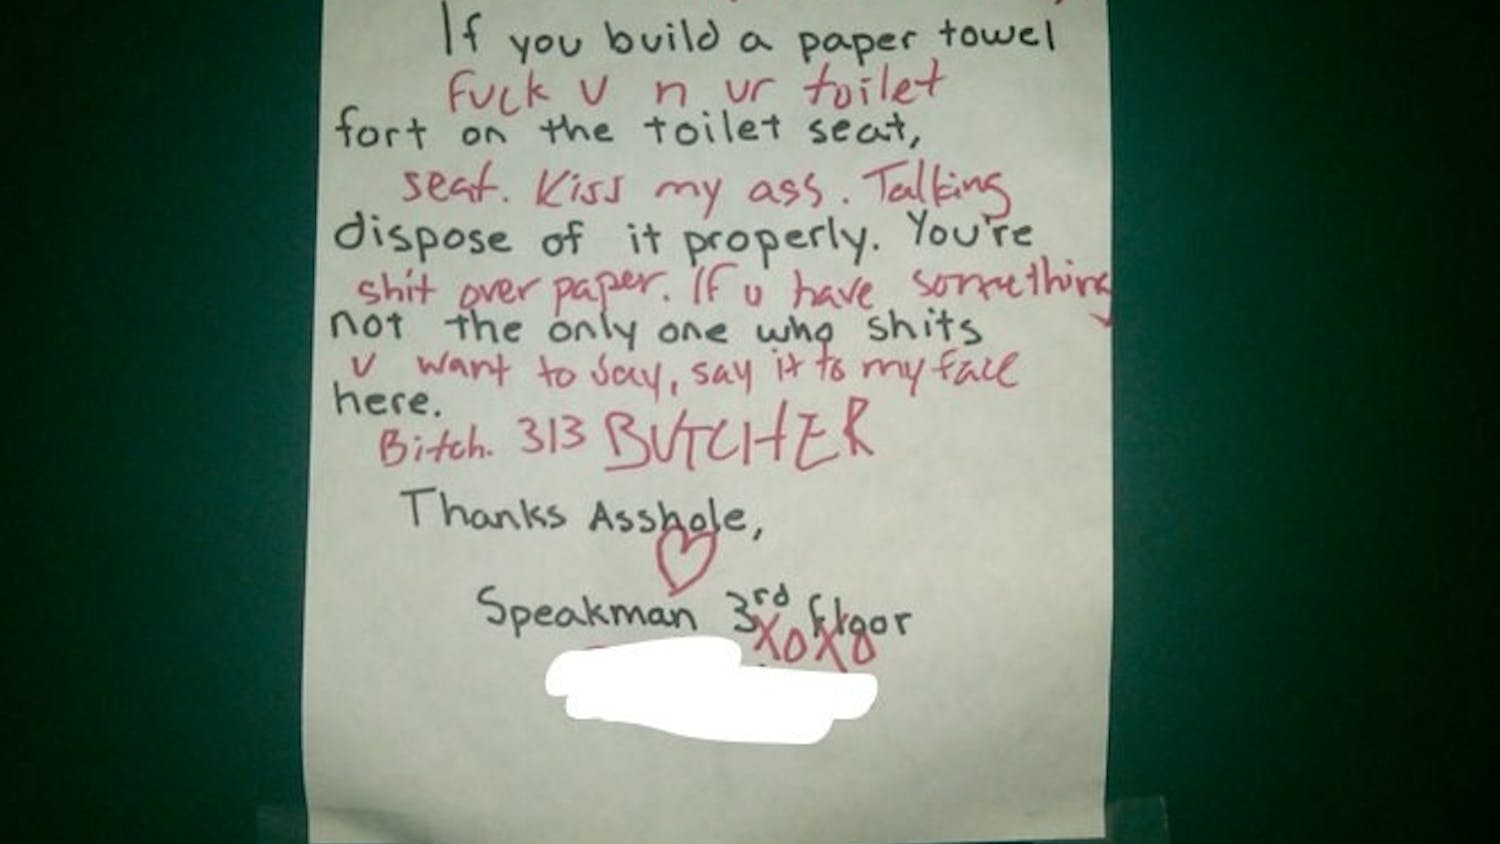 If you build a paper towel
Fuck U n ur toilet
fort on the toilet seat,
seat. Kiss my ass. Talking
dispose of it properly. You're
shit over paper. If u have something
not the only one who shits
U want to say, say it to my face
here.
Bitch. 313 BUTCHER
Thanks Asshole,
Speakman 3rd floor
XOXO